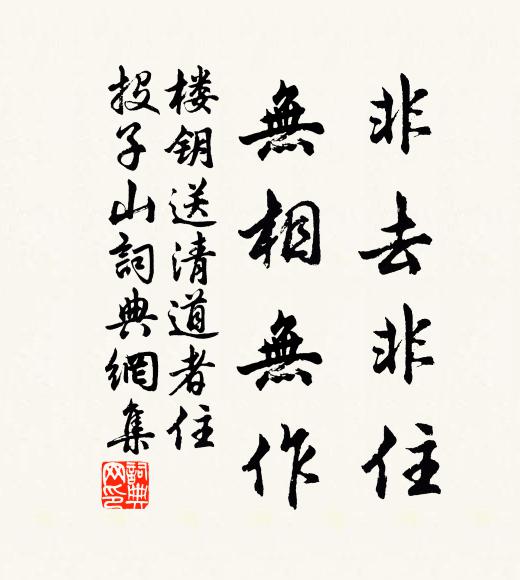 非去非住
無相無作
楼钥送清道者住
投子山詞典網集
詞典网印